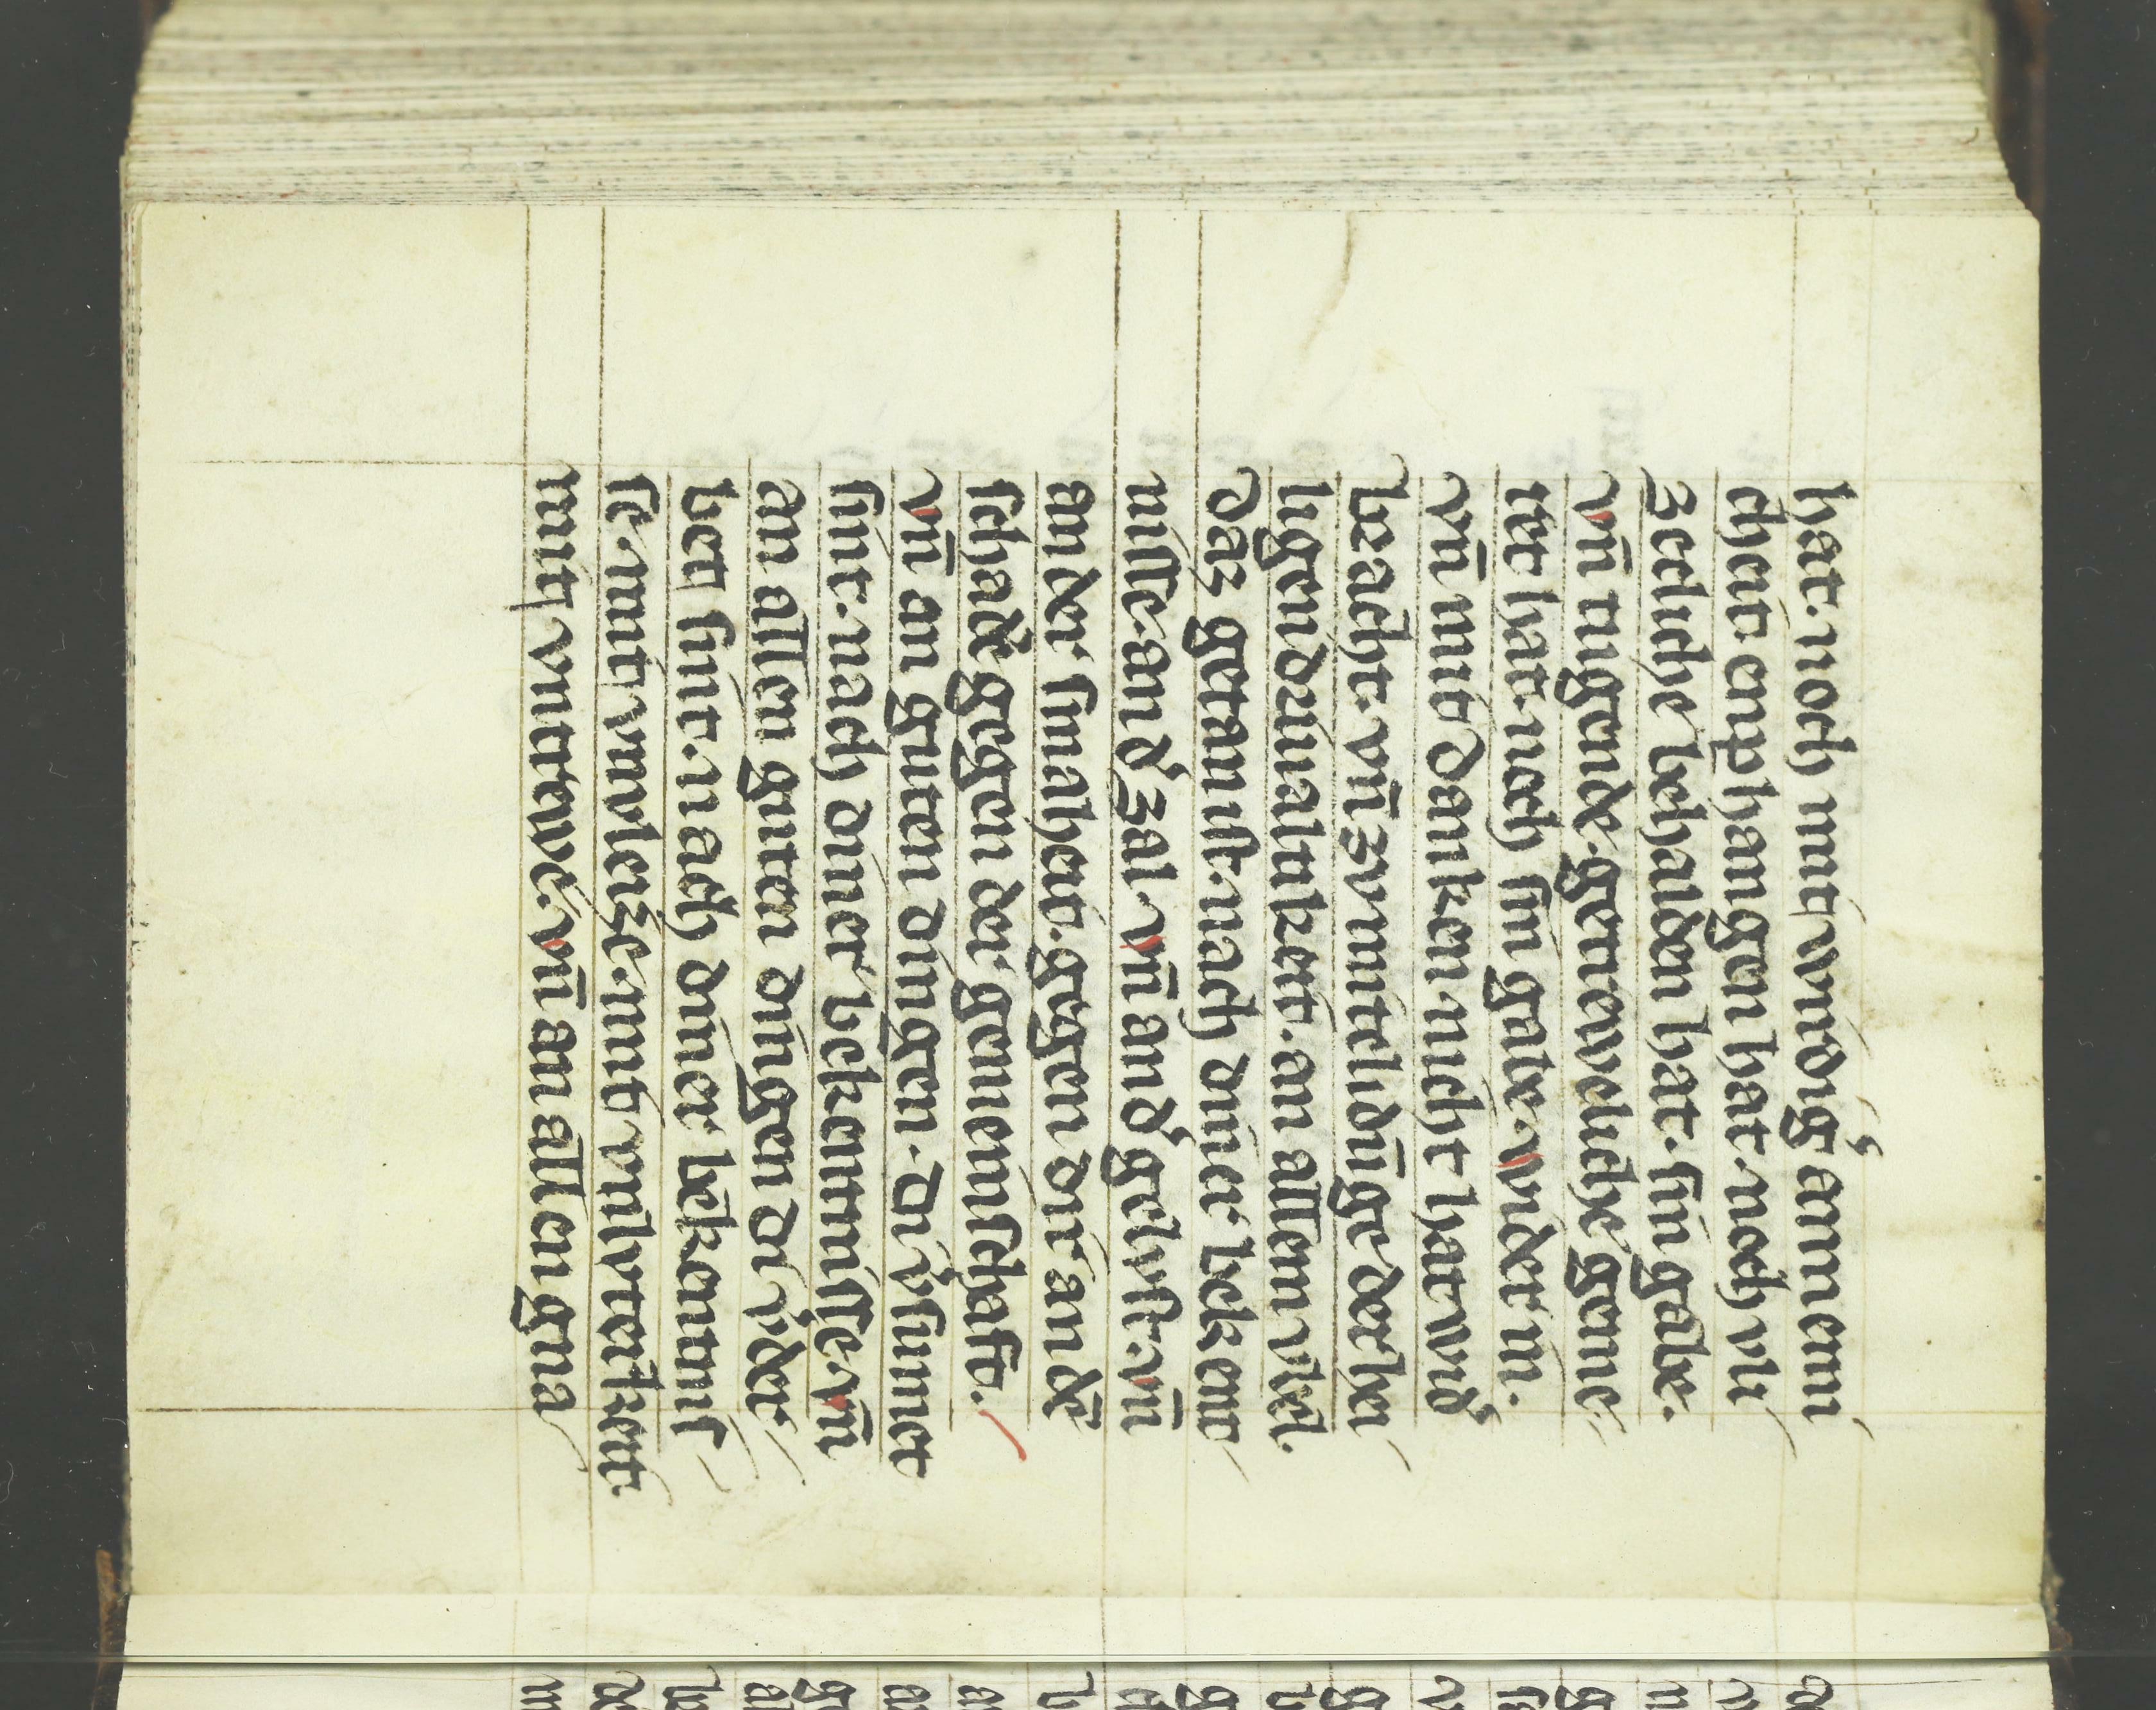 hat. noch mit vnvdig͛ ann em
cheit. enphangen hat. noch vli
zecliche behalden hat. sin gabe.
vn̄ tugende. getreweliche gemē
ret hat. noch sin gabe. wider in.
vn̄ mit danken nicht hat wid͛
bracht. vn̄ zvmitteldīge derhei
ligen drivaltikeit. an allen vbel.
daz getan ist. nach diner bekent
nisse. and͛ zal. vn̄ and͛ gelvst. vn̄
an der smaheit. gegen dir an dē
schadē gegen der gemeinschaft.
vn̄ an guten dingen. Di v͛sumet
sint. nach diner bekentnisse. vn̄
an allen guten dingen di v͛der
bet sint. nach diner bekentnis
se. mit vnvleize. mit vnlvterkeit.
mit vntrewe. vn̄ an allen gna